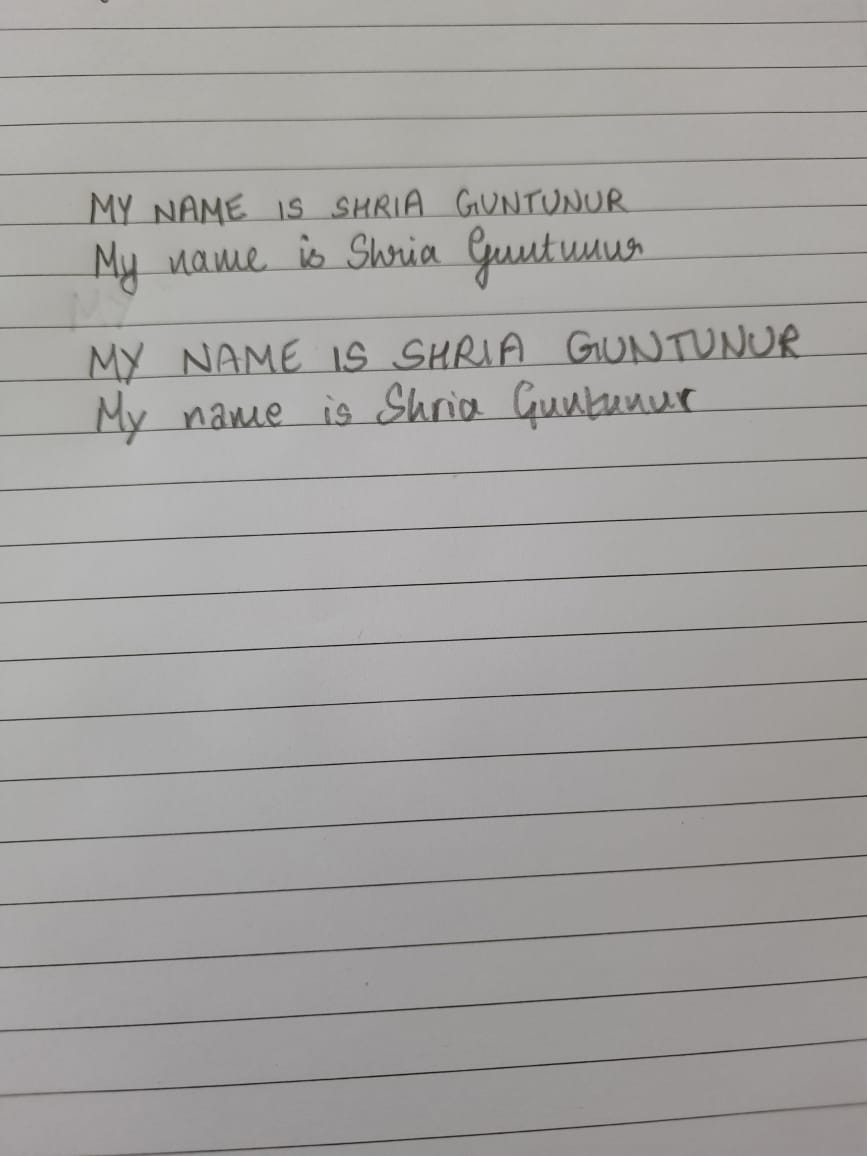 MY NAME IS SHRIA GUNTUNUR
My name is Shria Guntunur
MY
MY NAME IS SHRIA GUNTUNUR
My name is Shria Guntunur